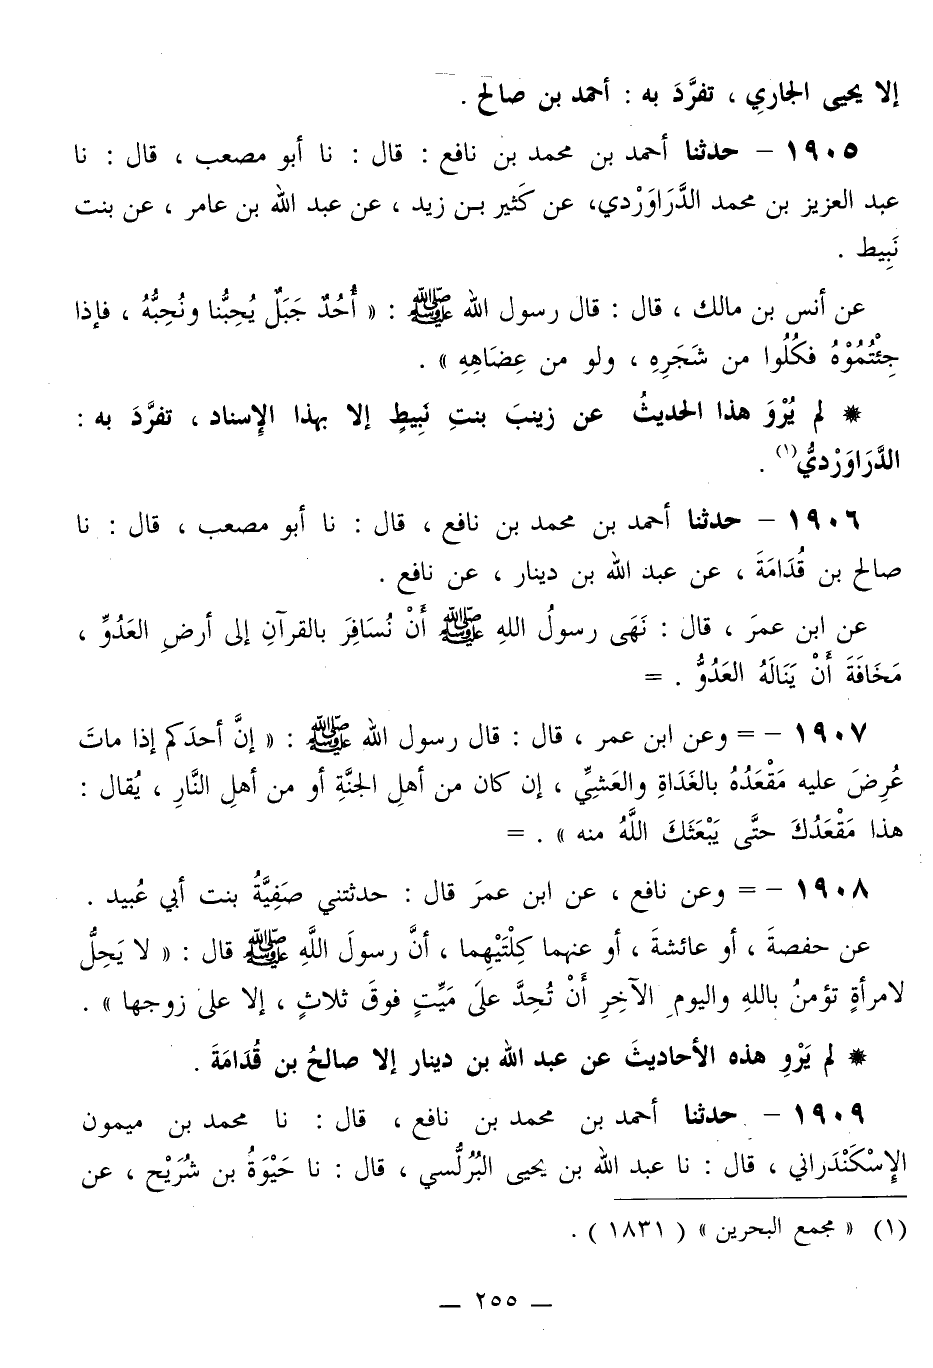 إلا يحيى الجاري ، تفرَّدَ به : أحمد بن صالح .
١٩٠٥ – حدثنا أحمد بن محمد بن نافع : قال : نا أبو مصعب ، قال : نا
عبد العزيز بن محمد الدَّرَاوَرْدي، عن كَثير بن زيد ، عن عبد الله بن عامر ، عن بنت
نَبِيط .
عن أنس بن مالك ، قال : قال رسول الله ﷺ : « أُحُدٌ جَبَلٌ يُحِبُّنا ونُحِبُّهُ ، فإذا
جِئْتُمُوْهُ فكُلُوا من شَجَرِهِ ، ولو من عِضَاهِهِ » .
* لم يُرْوَ هذا الحديثُ عن زينبَ بنتِ نَبِيطٍ إلا بهذا الإِسناد ، تفرَّدَ به :
الدَّرَاوَرْديُّ(١) .
١٩٠٦ – حدثنا أحمد بن محمد بن نافع ، قال : نا أبو مصعب ، قال : نا
صالح بن قُدَامَةَ ، عن عبد الله بن دينار ، عن نافع .
عن ابن عمرَ ، قال : نَهَى رسولُ اللهِ ﷺ أَنْ نُسَافِرَ بالقرآنِ إلى أرضِ العَدُوِّ ،
مَخَافَةَ أَنْ يَنَالَهُ العَدُوُّ . =
١٩٠٧ – = وعن ابن عمر ، قال : قال رسول الله ﷺ : « إنَّ أحدَكم إذا ماتَ
عُرِضَ عليه مَقْعَدُهُ بالغَدَاةِ والعَشِيِّ ، إن كان من أهلِ الجنَّةِ أو من أهلِ النَّارِ ، يُقال :
هذا مَقْعَدُكَ حتَّى يَبْعَثَكَ اللَّهُ منه » . =
١٩٠٨ – = وعن نافع ، عن ابن عمرَ قال : حدثتني صَفِيَّةُ بنت أبي عُبيد .
عن حفصةَ ، أو عائشةَ ، أو عنهما كِلْتَيْهِما ، أنَّ رسولَ اللَّهِ ﷺ قال : « لا يَحِلُّ
لامرأةٍ تؤمنُ باللهِ واليومِ الآخِرِ أَنْ تُحِدَّ علىَ مَيِّتٍ فوقَ ثلاثٍ ، إلا على زوجها » .
* لم يَرْوِ هذه الأحاديثَ عن عبد الله بن دينار إلا صالحُ بن قُدَامَةَ .
١٩٠٩ – حدثنا أحمد بن محمد بن نافع ، قال : نا محمد بن ميمون
الإِسْكَنْدَراني ، قال : نا عبد الله بن يحيى البُرُلُّسي ، قال : نا حَيْوَةُ بن شُرَيْح ، عن
(١) « مجمع البحرين » ( ١٨٣١ ) .
— ٢٥٥ —